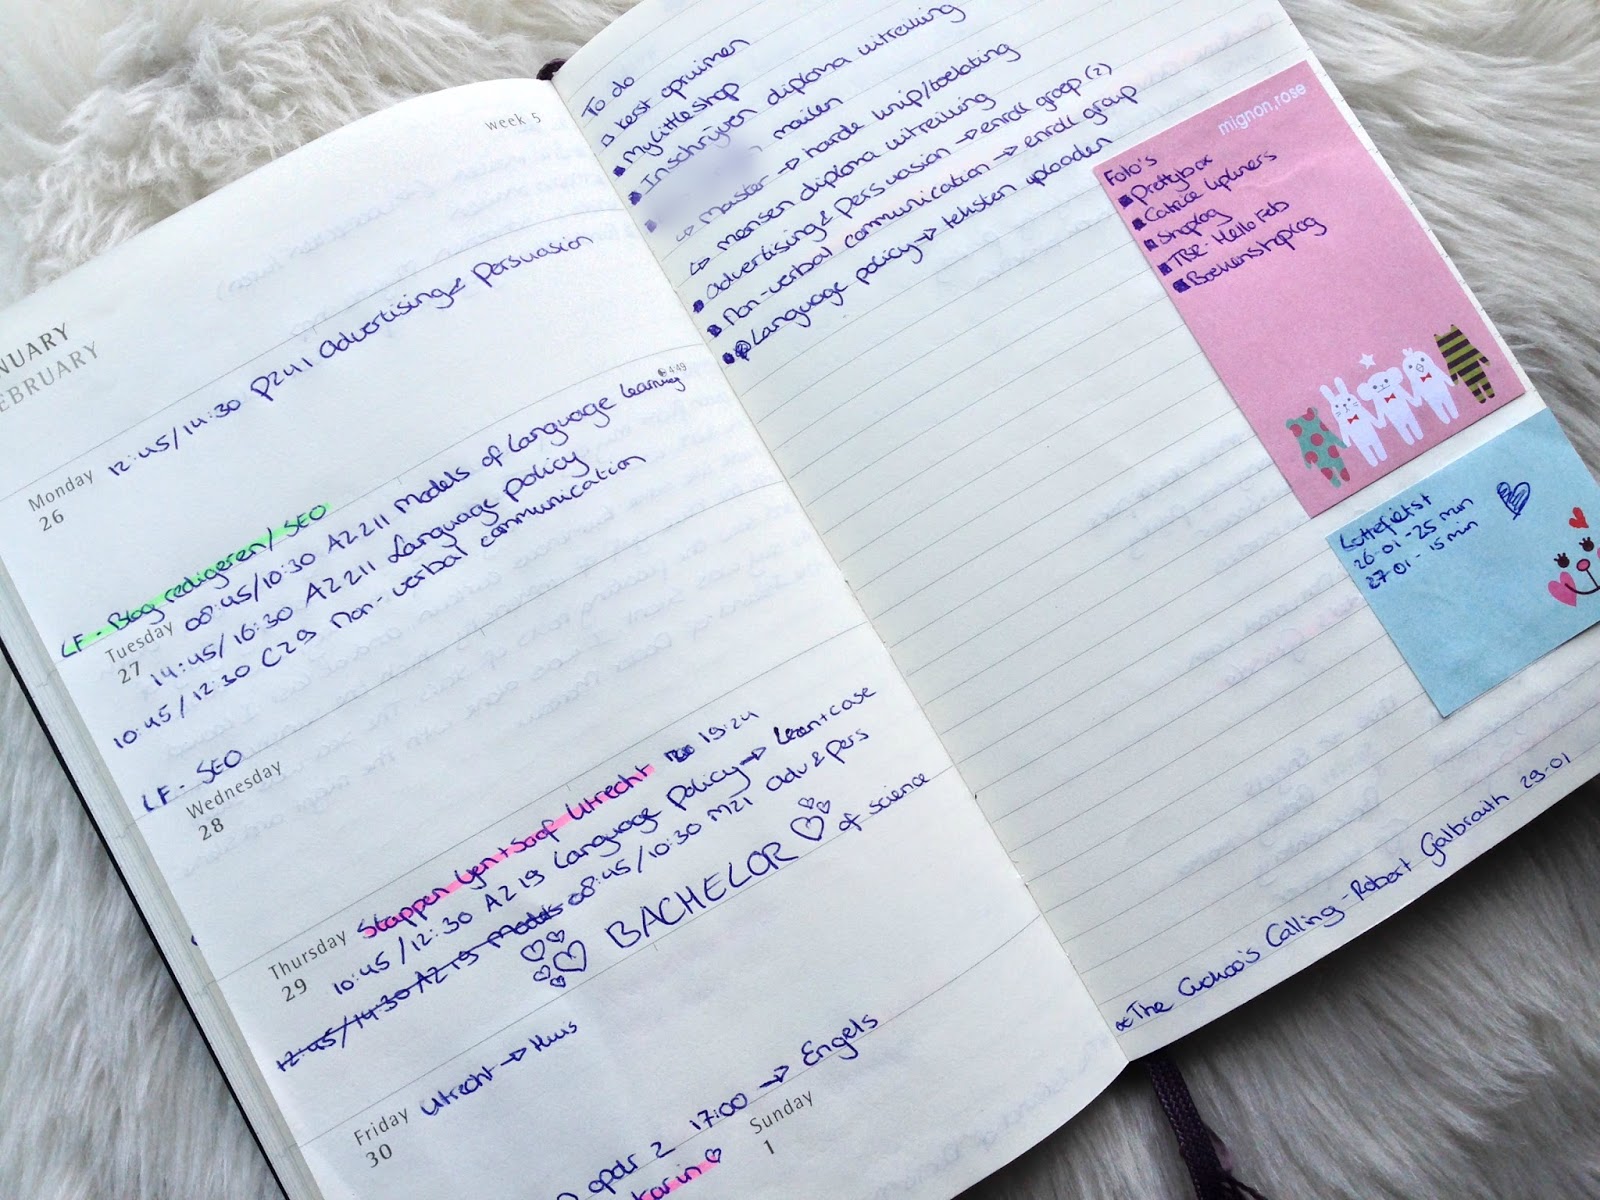 week 5
NUARY
EBRUARY
Monday
26
12:45/14:30 DZ41 Advertising & Persuasion
LF - Blog redigeren/SEO
Tuesday
27
4:49
08:45/10:30 AZ211 Models of Language Learning
14:45/16:30 AZ211 Language policy
10:45/12:30 CZ9 Non-verbal communication
LF - SEO
Wednesday
28
Thursday
29
Stappen Yen+Soof Utrecht 19:24
10:45/12:30 AZ19 Language Policy → Leren+case
12:45/14:30 AZ19 Models 08:45/10:30 MZ1 Adv & Pers
BACHELOR of science
Friday
30
Utrecht → Huis
opdr 2 17:00 → Engels
Karin
Sunday
1
To do
Kerst opruimen
MyLittleshop
Inschrijven diploma uitreiking
mailen
↳ Master → harde knip/toelating
↳ mensen diploma uitreiking
Advertising & Persuasion → enroll groep (2)
Non-verbal communication → enroll group
@Language policy → teksten uploaden
mignon,rose
Foto's
Prettybox
Catrice Lipliners
Shoplog
TBR - Hello Feb
Boekenshoplog
Lottefietst
26-01 - 25 min
27-01 - 15 min
The Cuckoo's Calling - Robert Galbraith 29-01